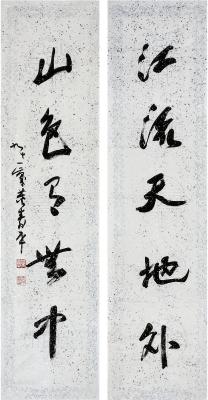 江流天地外
山色有無中
九十一叟董壽平